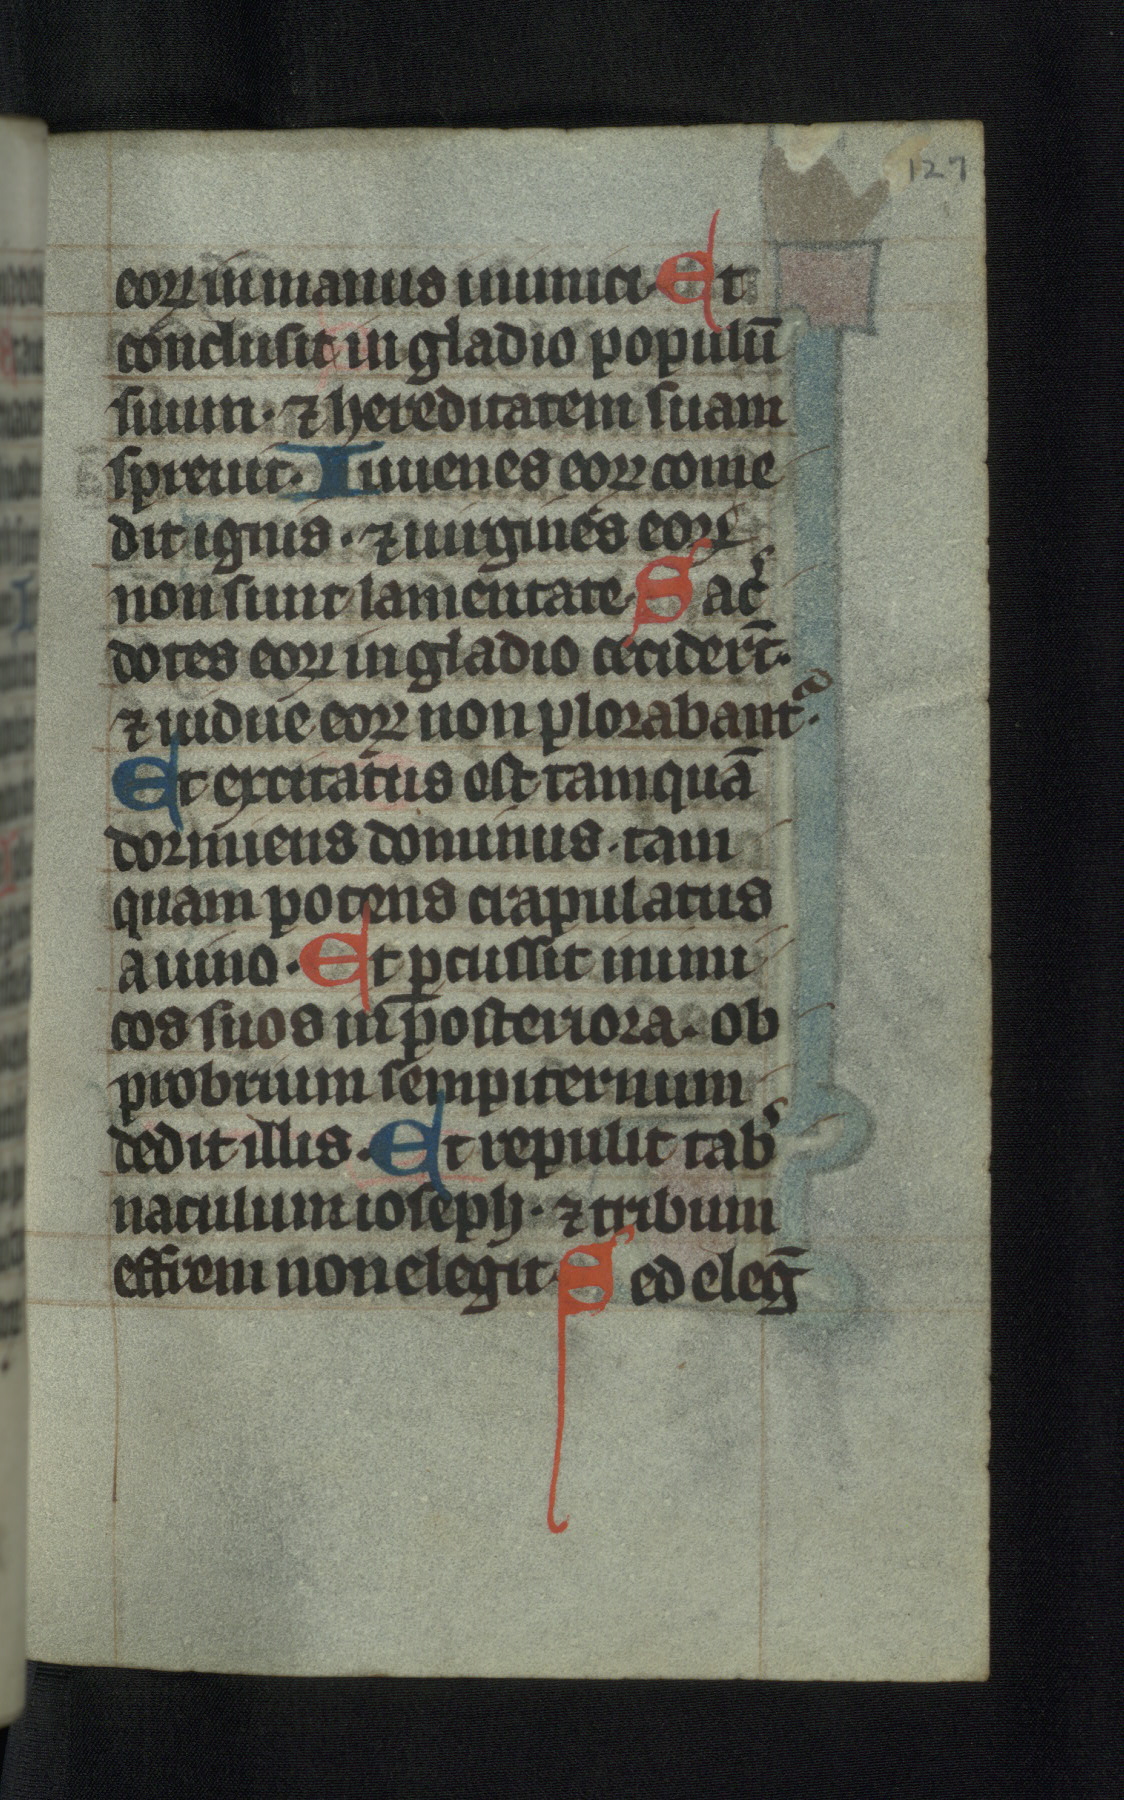 127
eoꝝ in manus inimici. Et
conclusit in gladio populū
suum. ⁊ hereditatem suam
spreuit. Iuuenes eoꝝ come
dit ignis. ⁊ uirgines eoꝝ
non sunt lamentate. Sac̉
dotes eoꝝ in gladio cecider̄t.
⁊ uidue eoꝝ non plorabant᷑.
Et excitatus est tamquā
dormiens dominus. tam
quam potens crapulatus
a uino. Et ꝑcussit inimi
cos suos in posteriora. ob
probrium sempiternum
dedit illis. Et repulit tab̉
naculum ioseph. ⁊ tribum
effrem non elegit. Sed eleḡ